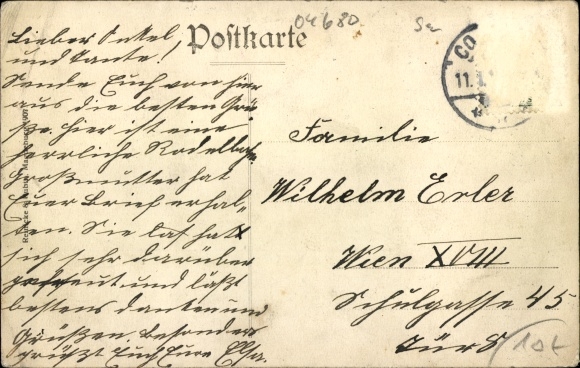 Postkarte
04680
Lieber Onkel
und Tante!
Sende Euch von hier
aus die besten Grü-
ße. Hier ist eine
herrliche Rodelbahn
Großmutter hat
Euer Brief erhal-
ten. Sie hat
sich sehr darüber
gefreut und läßt
bestens danken und
Grüßen. Besonders
grüßt Euch Eure Elsa.
Co
11.1
Familie
Wilhelm Erler
Wien XVIII
Schulgasse 45
Tür 8